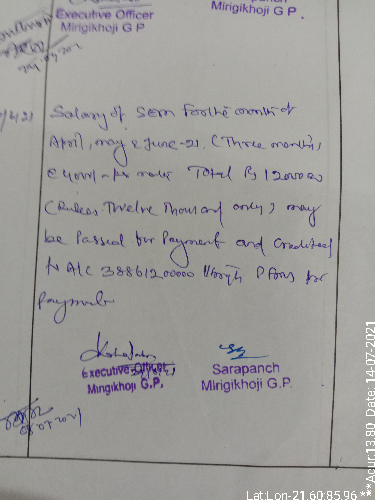 Executive Officer
Mirigikhoji G P
Mirigikhoji G.P.
Salary of SEM for the month of
April, may & June-21. (Three months)
Total Rs 12000.00
(Rupees Twelve Thousand only) may
be Passed for Payment and credited
to A/C 38861200000 through PFMS for
Payment
Executive Officer,
Mirigikhoji G.P.
Sarapanch
Mirigikhoji G.P.
Lat:Lon-21.60:85.96 **
**Acur:13.80 Date: 14-07-2021